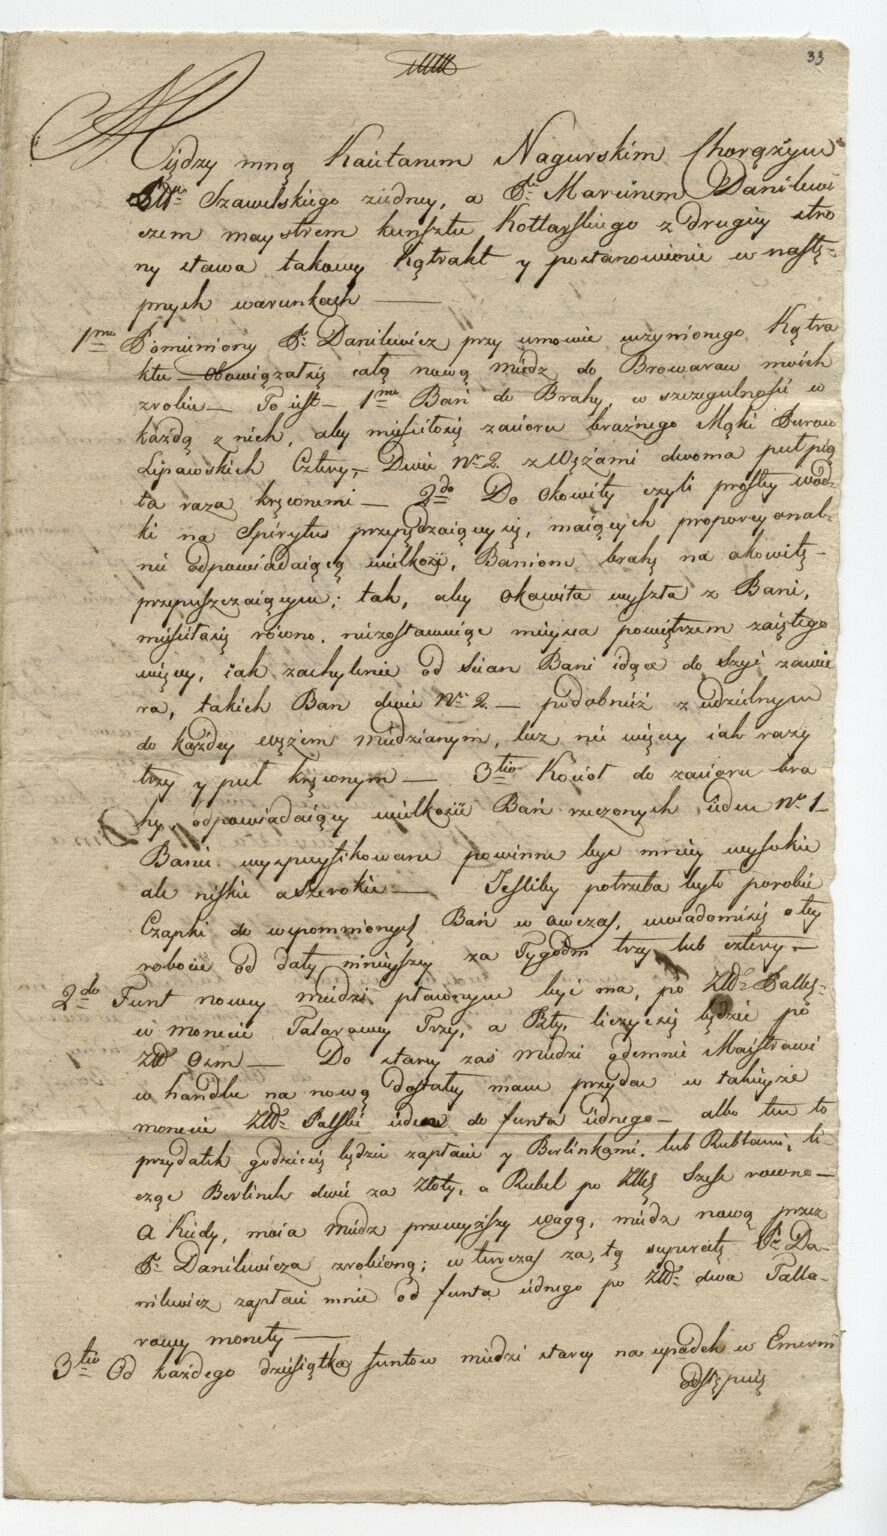 33
Między mną Kaietanem Nagurskim Chorążym
Pttu Szawelskiego ziedney, a P: Marcinem Danilewi
czem maystrem kunsztu Kotlarskiego z drugiey stro
ny stawa takowy Kątrakt y postanowienie w nastę-
pnych warunkach —
1mo Pomieniony P: Danilewicz przy umowie uczynionego Kątra
ktu — obowiązałsię całą nową miedź do Browarow moich
zrobić — To iest — 1mo Bań do Brahy, w szczegulności w
każdą z nich, aby mieściłosię zacioru braźnego Mąki Purow
Lipawskich Cztery, — Dwie Nro 2. z Wężami dwoma puł pię
ta raza kręconemi — 2do Do Okowity czyli prostey wod-
ki na Spirytus przepędzaiącey się, maiących proporcyonal-
nie odpowiadaiącą wielkość, Baniom brahę na okowitę —
przepuszczaiącym; tak, aby Okawita wyszła z Bani,
mieściłasię równo, niezostawuiąc mieysca powietrzem zaiętego
więcey, iak zachylenie od scian Bani idące do Szyi zawie
ra, takich Bań dwie Nro 2. — podobnież z udzielnym
do każdey wężem miedzianym, lecz nie więcey iak razy
trzy y puł kręconym — 3tio Kocioł do zacioru bra
hy, odpowiadaiący wielkości Bań rzeczonych ieden Nro 1 —
Banie wyzpecyfikowane powinne bydź mniey wysokie
ale niskie a szerokie — Jesliby potrzeba było porobić
Czapki do wspomnionych Bań w owczas, uwiadomięsię o tey
robocie od daty ninieyszey za Tygodni trzy lub cztery —
2do Funt nowey miedzi płaconym być ma, po Złłch Pallsk-
w monecie Talarowey Trzy, a Bty. liczyć się będzie po
Złłt Osm — Do starey zaś miedzi odemnie Maistrowi
w handlu na nową dostałey mam przydać w takieyże
monecie Złłt: Polski ieden do funta iednego — albo ten to
przydatek godzien będzie zapłacić y Berlinkami, lub Rublami, li-
cząc Berlinek dwie za Złoty, a Rubel po Złłch Szesć rowno —
A kiedy, moia miedz przewyższy wagą, miedz nową przez
P: Danilewicza zrobioną; w tenczas za, tę superatę P: Da-
nilewicz zapłaci mnie od funta iednego po Złłt: dwa Talla-
rowey monety —
3tio Od każdego dziesiątka funtow miedzi starey na upadek w Emerni
odstępuię